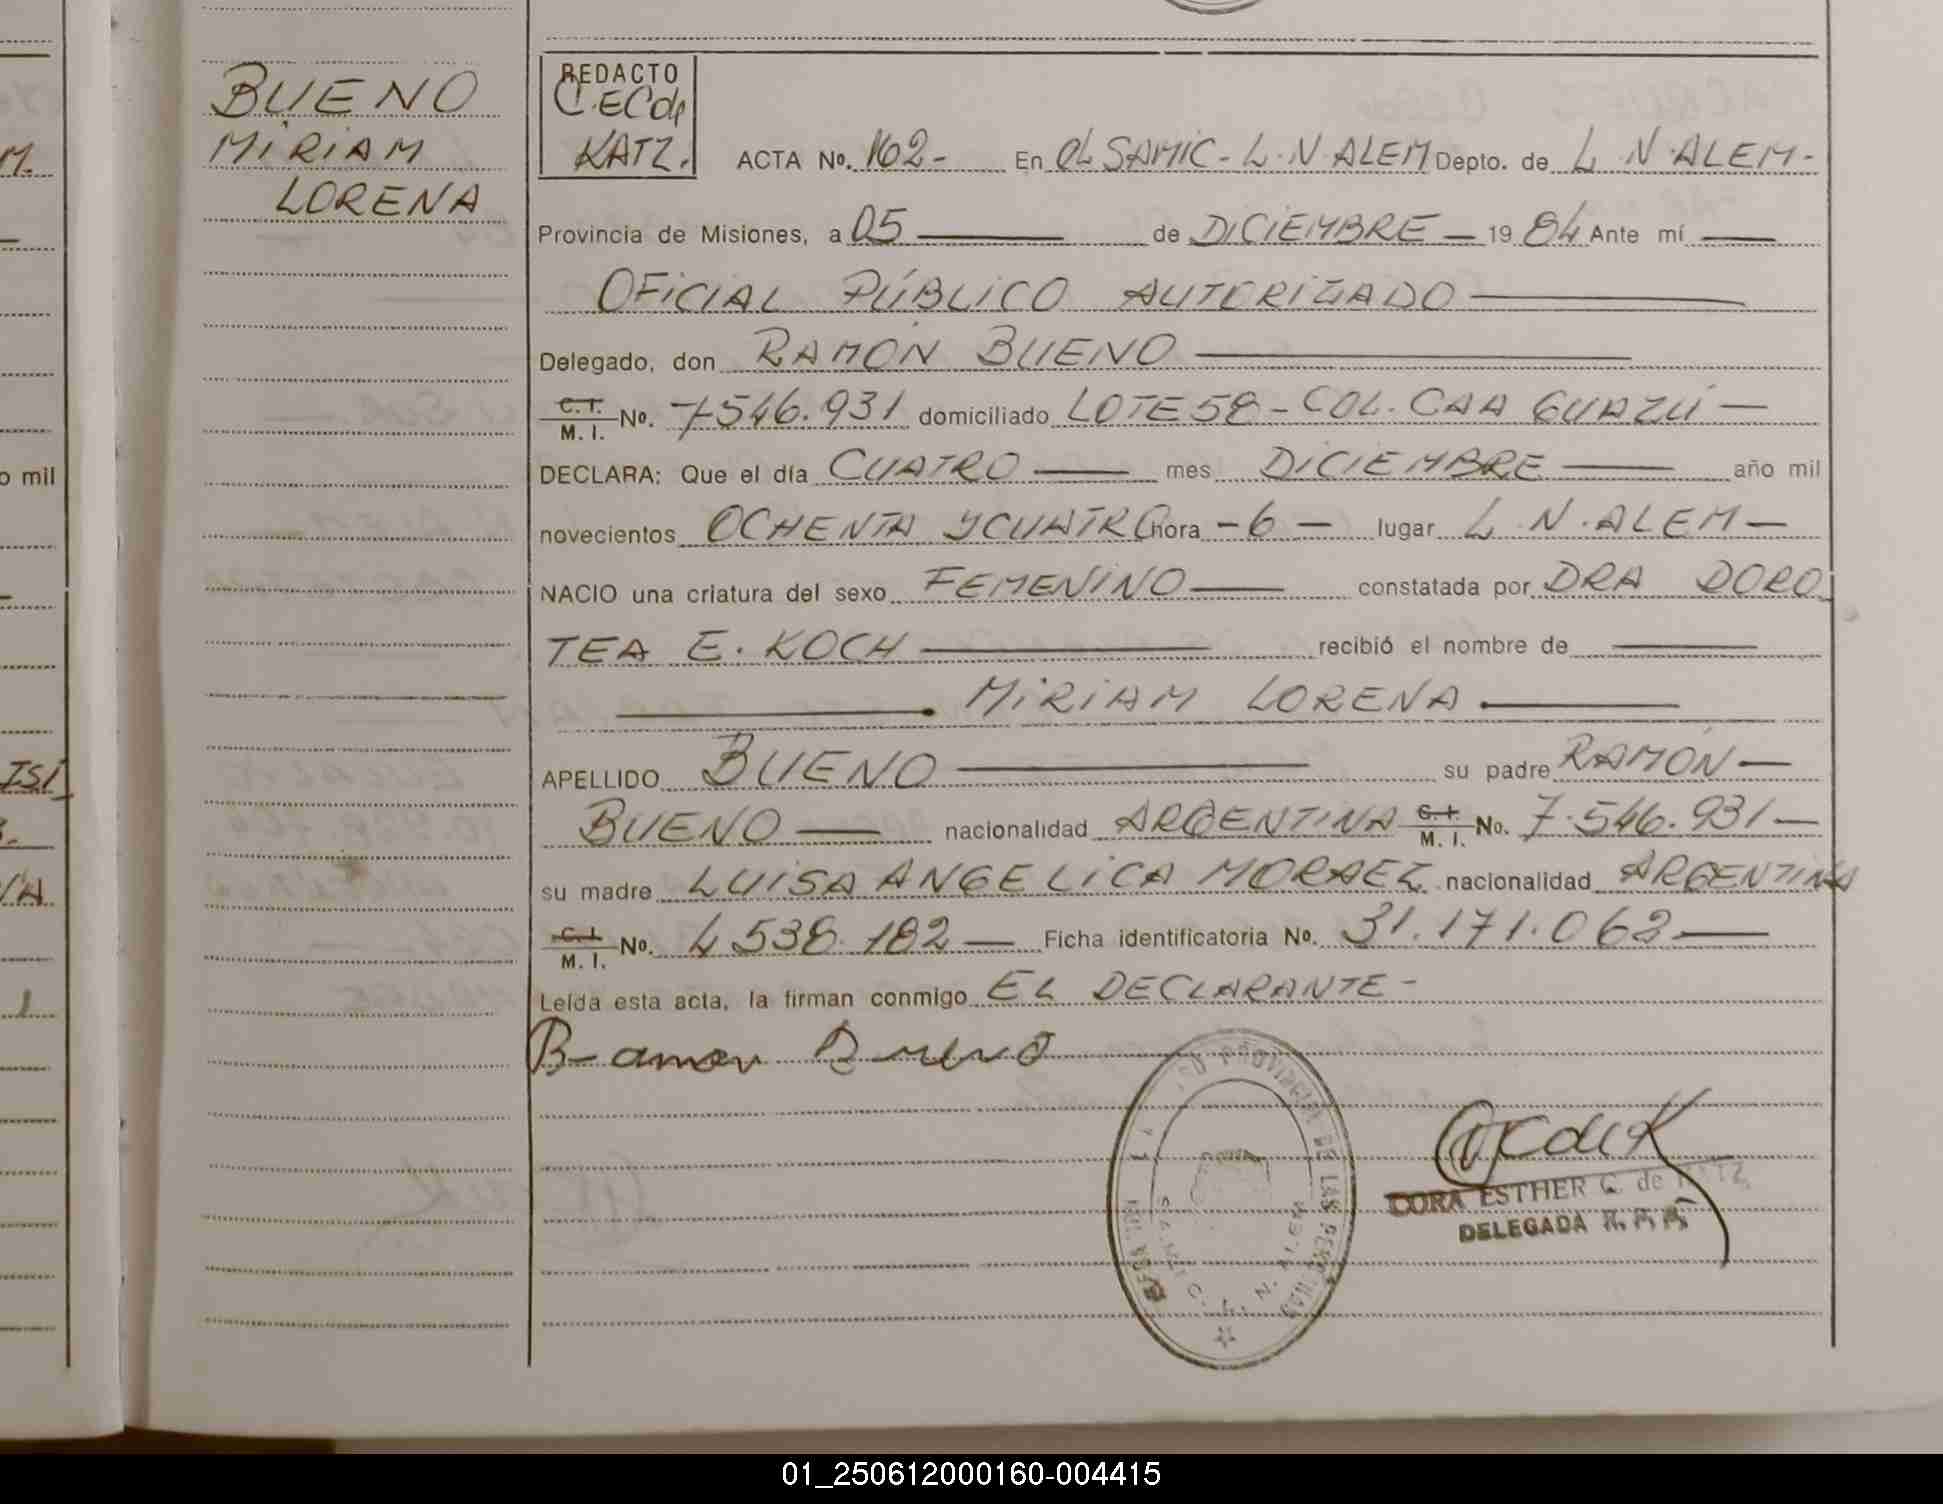 BUENO
MIRIAM
LORENA
M.
o mil
ISÍ
REDACTO
C.ECde
KATZ.
ACTA No. 162- En el SAMIC - L.N.ALEM Depto. de L.N.ALEM-
Provincia de Misiones, a 05 de DICIEMBRE - 19 84 Ante mí
OFICIAL PÚBLICO AUTORIZADO
Delegado, don RAMÓN BUENO
C.I. M. I. No. 7546.931 domiciliado LOTE 58 - COL. CAA GUAZÚ -
DECLARA: Que el día CUATRO mes DICIEMBRE año mil
novecientos OCHENTA Y CUATRO hora -6- lugar L.N.ALEM -
NACIO una criatura del sexo FEMENINO constatada por DRA DORO
TEA E. KOCH recibió el nombre de
MIRIAM LORENA
APELLIDO BUENO su padre RAMÓN -
BUENO nacionalidad ARGENTINA C.I. M. I. No. 7.546.931-
su madre LUISA ANGELICA MORAEZ nacionalidad ARGENTINA
C.I. M. I. No. 4538.182 Ficha identificatoria No. 31.171.062
Leída esta acta, la firman conmigo EL DECLARANTE-
Ramon Bueno
PROVINCIAL DE LAS PERSONAS
S.A.M.I.C. L. N. ALEM
CORA ESTHER C. de KATZ
DELEGADA R. P. P.
01_250612000160-004415